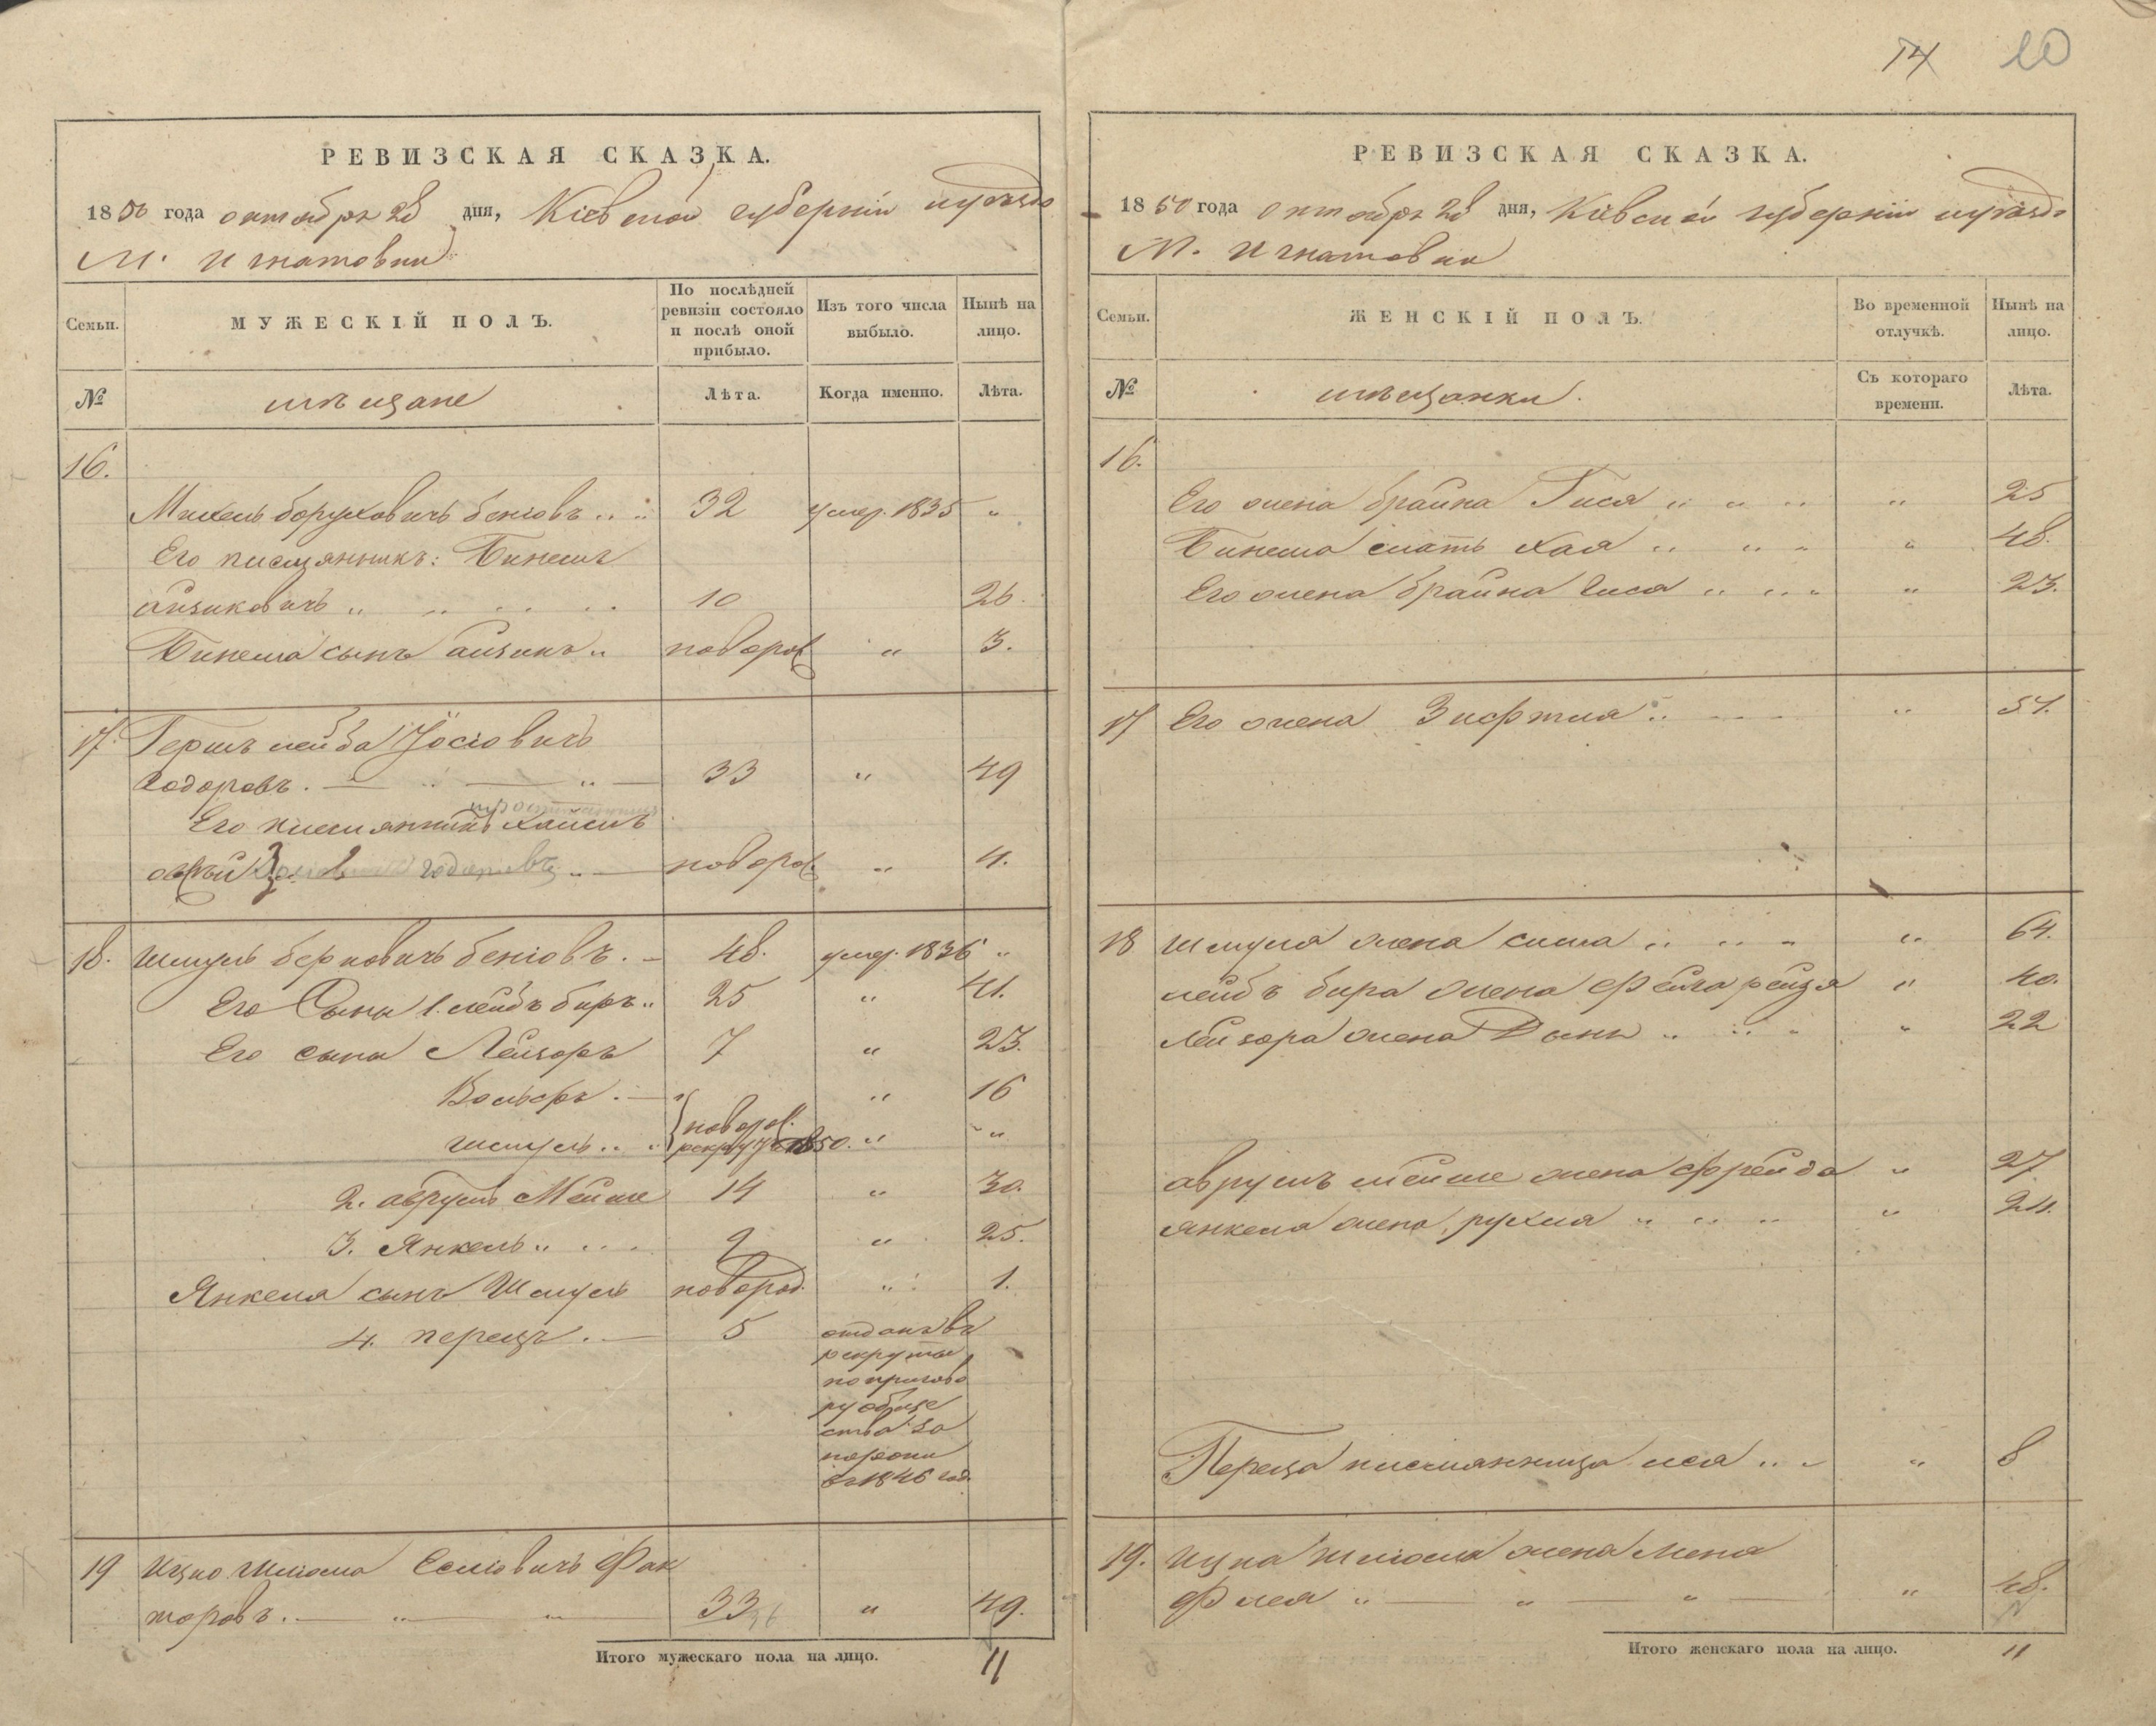 14 20
РЕВИЗСКАЯ СКАЗКА.
1850 года октября 28 дня, Кіевской губерніи и уѣзда
М. Игнатовки
Семьи.
МУЖЕСКІЙ ПОЛЪ.
По послѣдней ревизіи состояло и послѣ оной прибыло.
Изъ того числа выбыло.
Нынѣ на лицо.
№
мѣщане
Лѣта.
Когда именно.
Лѣта.
16.
Михель Боруховичъ Бенiовъ 32 умер. 1835 "
Его племянникъ: Бинемъ
Айзиковичъ 10 26.
Бинема сынъ Айзикъ новорож " 3.
17. Гершъ Лейба Іосiовичъ
Ходоровъ. 33 " 49
Его племянникъ Хаимъ
новорож. " 4.
18. Шмуль Берковичъ Бенiовъ. 48. умер. 1836 "
Его Сыны 1. Лейбъ Биръ 25 " 41.
Его сыны Лейзоръ 7 " 23.
Вольфъ. " 16
Шмуль новорож. рекрут 1850. " "
2. Аврумъ Мейше 14 " 30.
3. Янкель 9 " 25.
Янкеля сынъ Шмуль новорож. " 1.
4. Перецъ. 5 отданъ въ
рекруты
по пригово
ру обще
ства за
пороки
въ 1846 год.
19 Ицко Шлiома Селiовичъ Фак
торовъ. 33 " 49.
Итого мужескаго пола на лицо. 11
РЕВИЗСКАЯ СКАЗКА.
1850 года октября 28 дня, Кіевской губерніи и уѣзда
М. Игнатовки
Семьи.
ЖЕНСКІЙ ПОЛЪ.
Во временной отлучкѣ.
Нынѣ на лицо.
№
мѣщанки.
Съ котораго времени.
Лѣта.
16.
Его жена Брайна Гися " 25
Бинема мать Хая " 48.
Его жена Брайна Гися " 23.
17 Его жена Зисфтля " 51.
18 Шмуля жена Сима " 64.
Лейбъ Бира жена Фейга Рейзя " 40.
Лейзора жена Двыни " 22
Аврумъ Мейше жена Фрейда " 27
Янкеля жена, Рухля " 24.
Переца племянница Лея " 8
19. Ицка Шлiомы жена Мена
Флея " 48.
Итого женскаго пола на лицо. 11